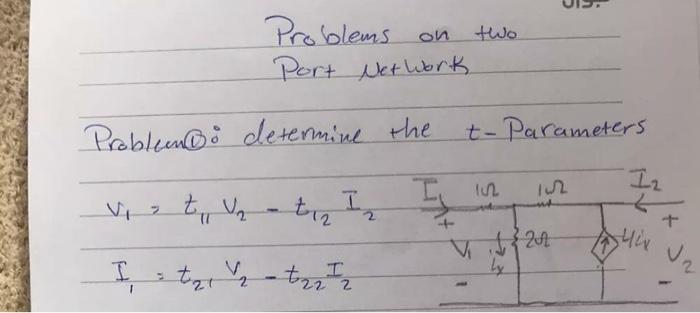 Problems on two
Port Network
Problem①: determine the t-Parameters
V₁ = t₁₁ V₂ - t₁₂ I₂
I₁ = t₂₁ V₂ - t₂₂ I₂
I₁ 1Ω 1Ω I₂
+ +
V₁ iₓ 2Ω 4iₓ V₂
- -